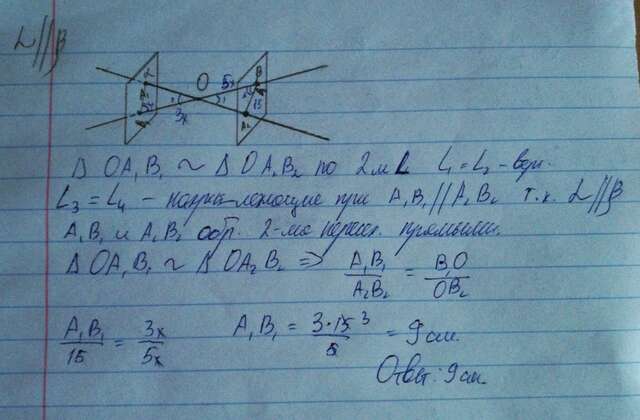 α//β
O
5x
3x
15
Δ OA₁B₁ ~ Δ OA₂B₂ по 2м ∠ ∠₁=∠₂ - верт.
∠₃=∠₄ - накрест лежащие при A₁B₁//A₂B₂ т.к. α//β
A₁B₁ и A₂B₂ обр. 2-мя перес. прямыми.
Δ OA₁B₁ ~ Δ OA₂B₂ => A₁B₁/A₂B₂ = B₁O/OB₂
A₁B₁/15 = 3x/5x A₁B₁ = 3·15³/5 = 9 см.
Ответ: 9 см